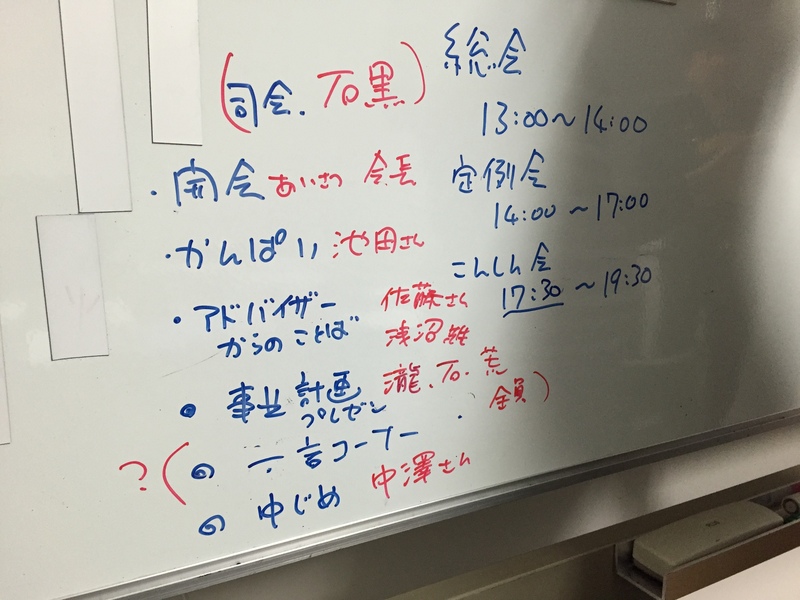 (司会.石黒)
・開会あいさつ 会長
・かんぱい 池田さん
・アドバイザー 佐藤さん
からのことば 浅沼雄
・事业計画 瀧.石.荒
プレゼン 全員)
?(・一言コーナー
・中じめ 中澤さん
総会
13:00〜14:00
定例会
14:00〜17:00
こんしん会
17:30〜19:30